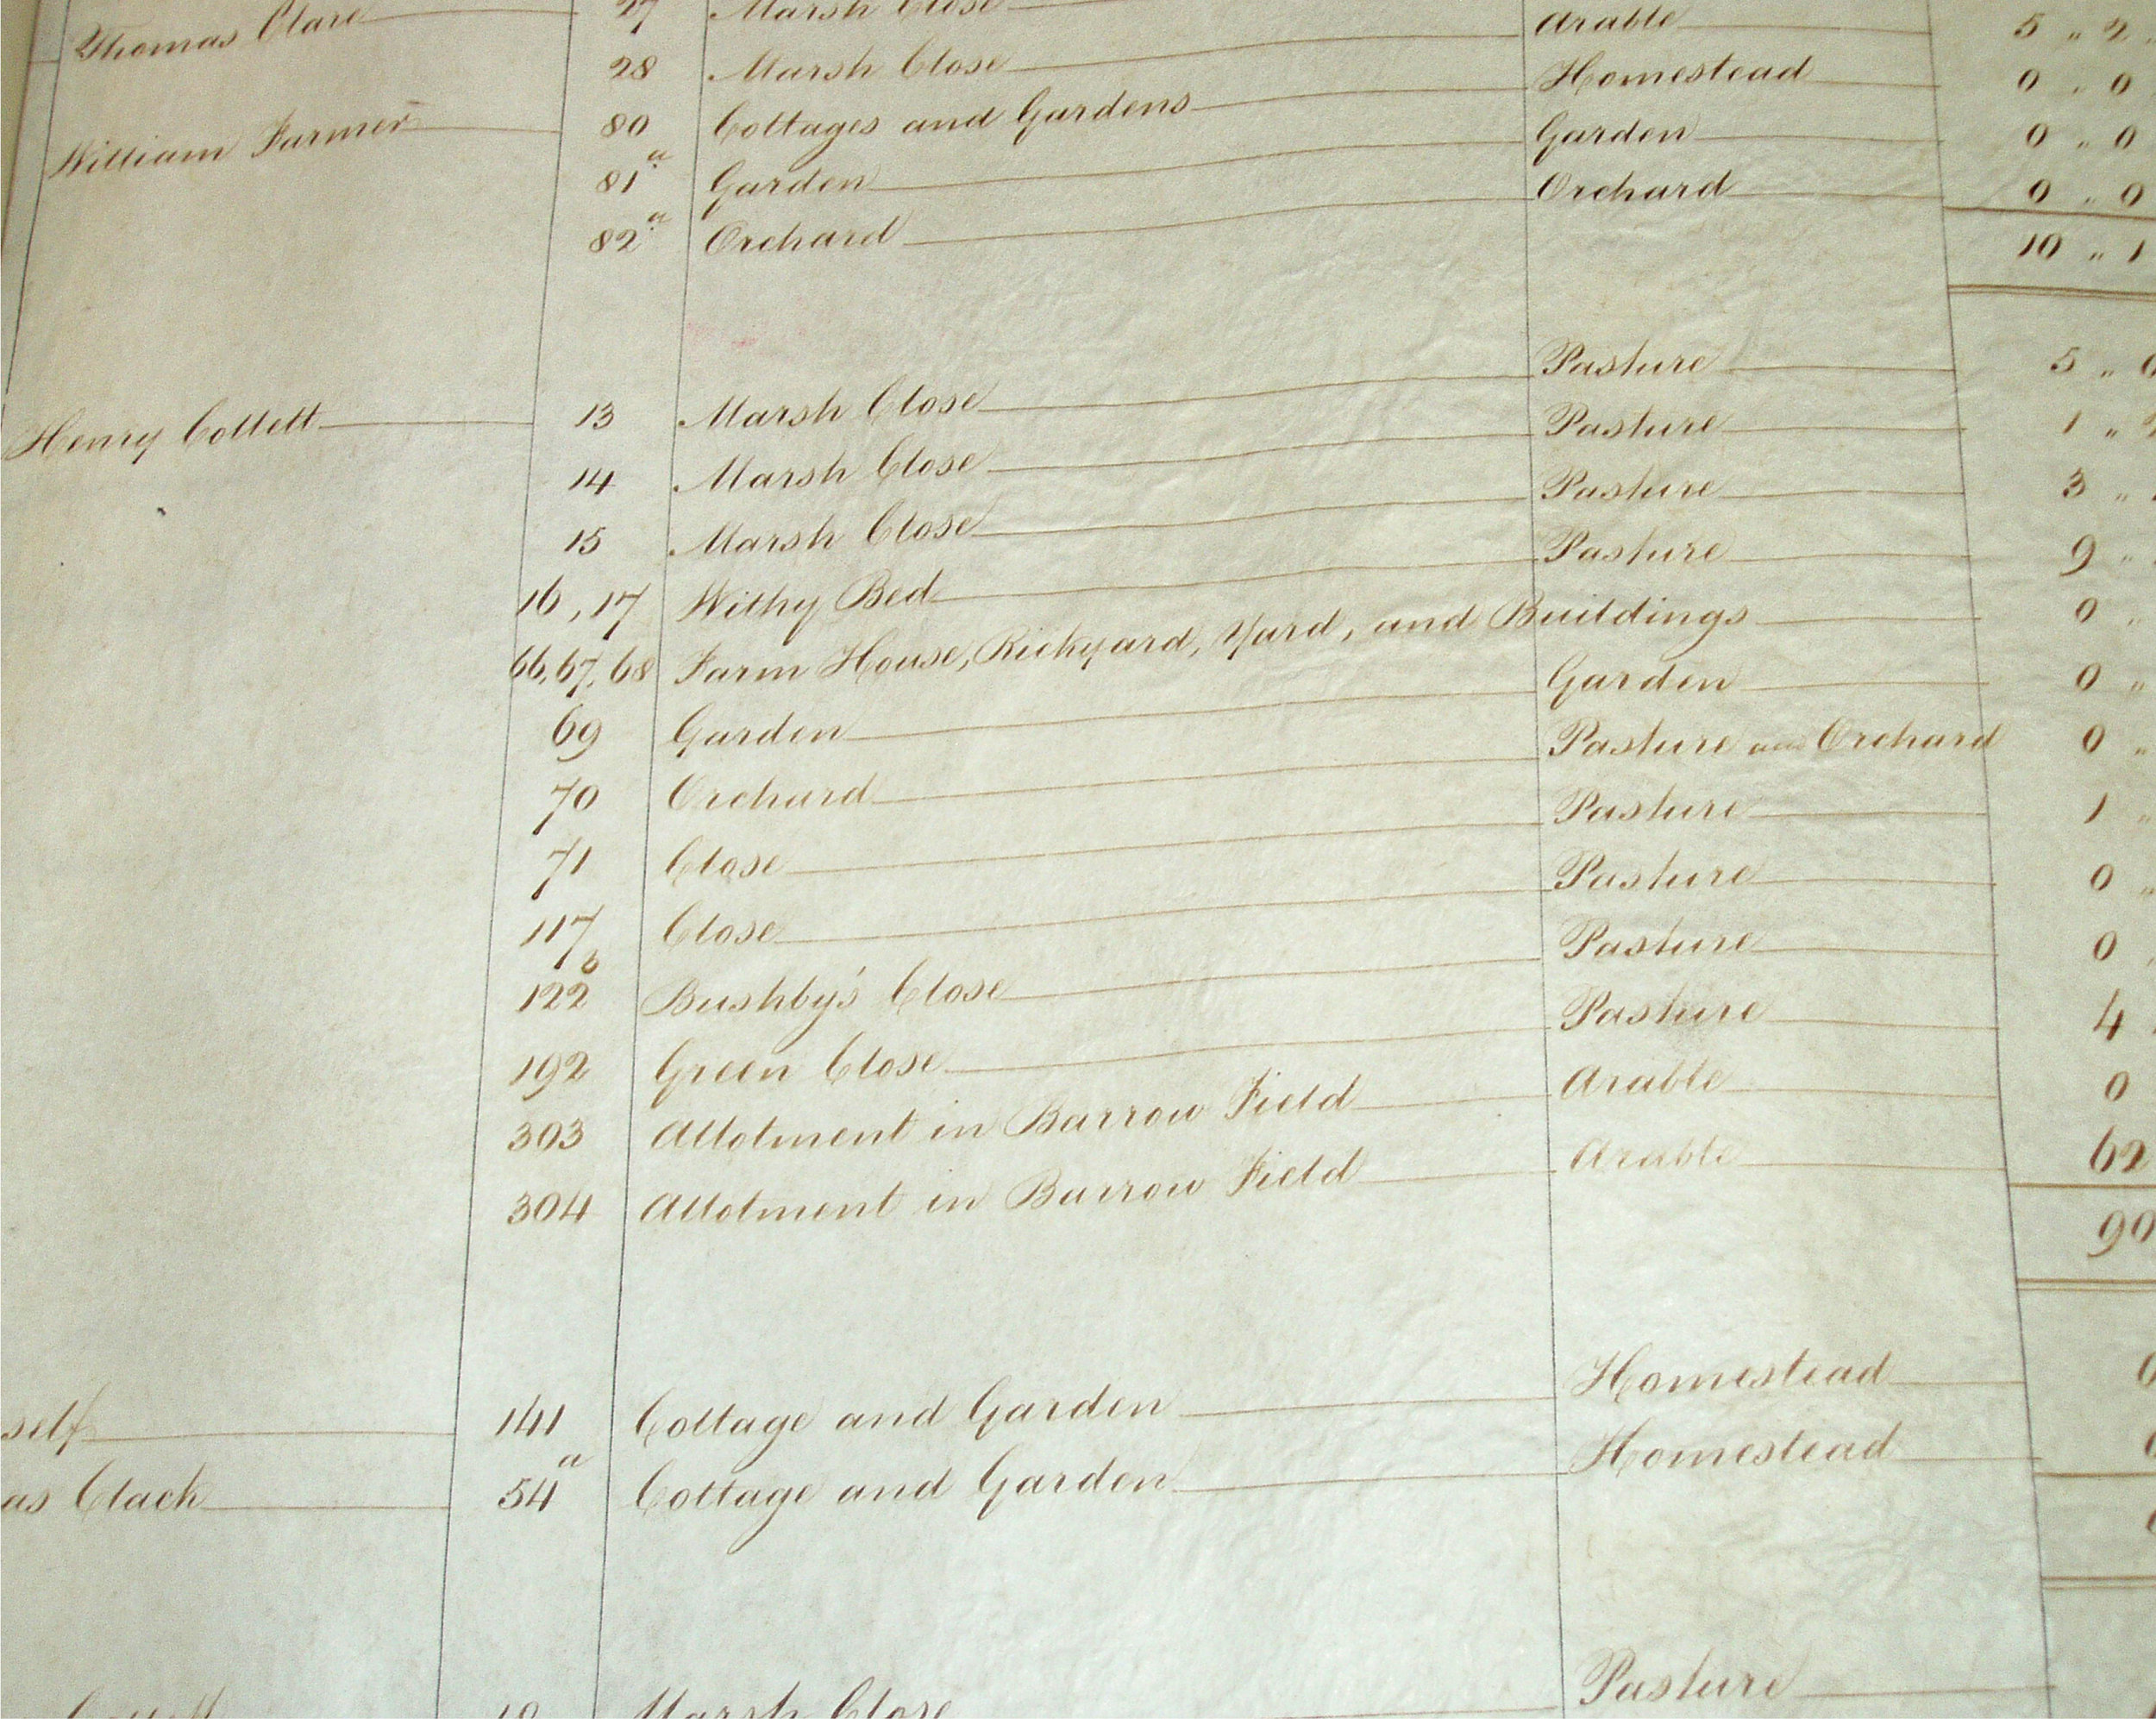 Thomas Clare 27 Marsh Close Arable 5 " 2 "
28 Marsh Close Homestead 0 " 0
William Farmer 80 Cottages and Gardens Garden 0 " 0
81a Garden Orchard 0 " 0
82a Orchard 10 " 1
Henry Collett 13 Marsh Close Pasture 5 "
14 Marsh Close Pasture 1 "
15 Marsh Close Pasture 3 "
16, 17 Withy Bed Pasture 9 "
66, 67, 68 Farm House, Rickyard, Yard, and Buildings 0 "
69 Garden Garden 0 "
70 Orchard Pasture and Orchard 0 "
71 Close Pasture 1 "
117 Close Pasture 0 "
122b Bushby's Close Pasture 0
192 Green Close Pasture 4
303 Allotment in Barrow Field Arable 0
304 Allotment in Barrow Field Arable 62
90
self 141 Cottage and Garden Homestead
as Clack 54a Cottage and Garden Homestead
Marsh Close Pasture